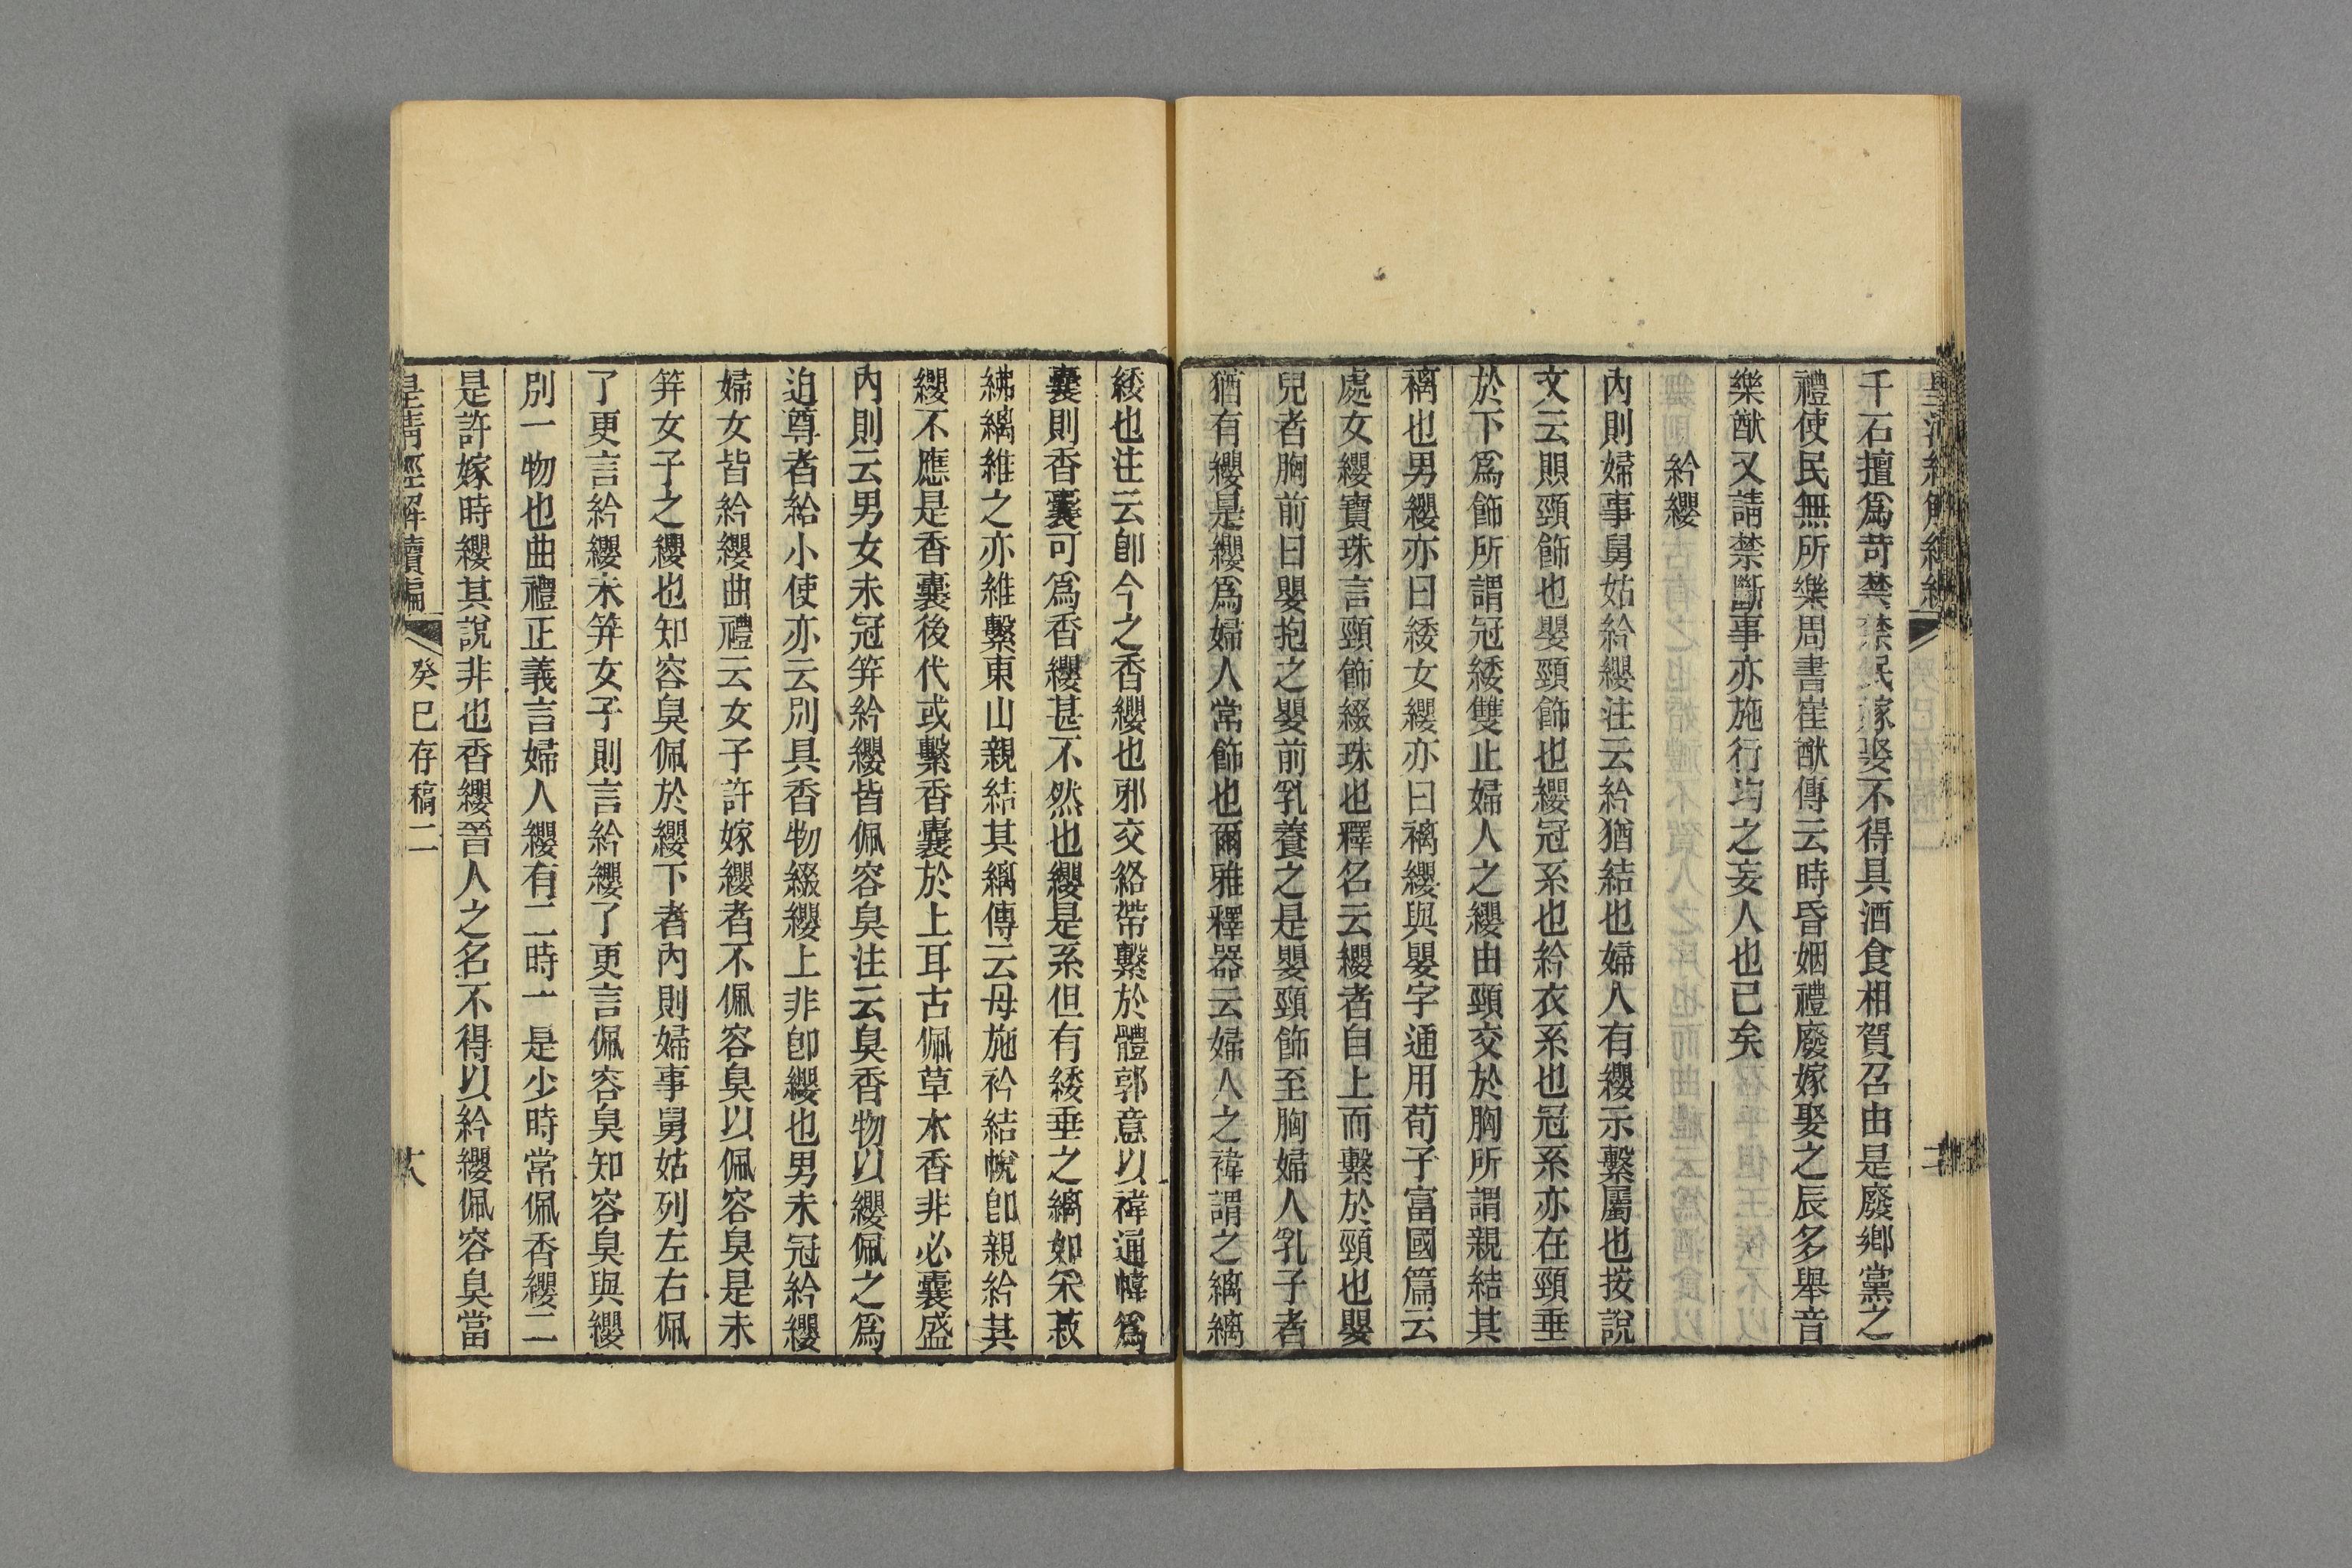 千石擅爲苛禁禁民嫁娶不得具酒食相賀召由是廢鄉黨之
禮使民無所樂周書崔猷傳云時昏姻禮廢嫁娶之辰多舉音
樂猷又請禁斷事亦施行均之妄人也已矣
紟纓
內則婦事舅姑紟纓注云紟猶結也婦人有纓示繫屬也按說
文云賏頸飾也嬰頸飾也纓冠系也紟衣系也冠系亦在頸垂
於下爲飾所謂冠緌雙止婦人之纓由頸交於胸所謂親結其
褵也男纓亦曰緌女纓亦曰褵纓與嬰字通用荀子富國篇云
處女纓寶珠言頸飾綴珠也釋名云纓者自上而繫於頸也嬰
兒者胸前曰嬰抱之嬰前乳養之是嬰頸飾至胸婦人乳子者
猶有纓是纓爲婦人常飾也爾雅釋器云婦人之褘謂之縭縭
緌也注云卽今之香纓也邪交絡帶繫於體郭意以褘通幃爲
囊則香囊可爲香纓甚不然也纓是系但有緌垂之縭如宋菽
紼縭維之亦維繫東山親結其縭傳云母施衿結帨卽親紟其
纓不應是香囊後代或繫香囊於上耳古佩草木香非必囊盛
內則云男女未冠笄紟纓皆佩容臭注云臭香物以纓佩之爲
迫尊者給小使亦云別具香物綴纓上非卽纓也男未冠紟纓
婦女皆紟纓曲禮云女子許嫁纓者不佩容臭以佩容臭是未
笄女子之纓也知容臭佩於纓下者內則婦事舅姑列左右佩
了更言紟纓未笄女子則言紟纓了更言佩容臭知容臭與纓
別一物也曲禮正義言婦人纓有二時一是少時常佩香纓二
是許嫁時纓其說非也香纓晉人之名不得以紟纓佩容臭當
皇淸經解續編 癸巳存稿二